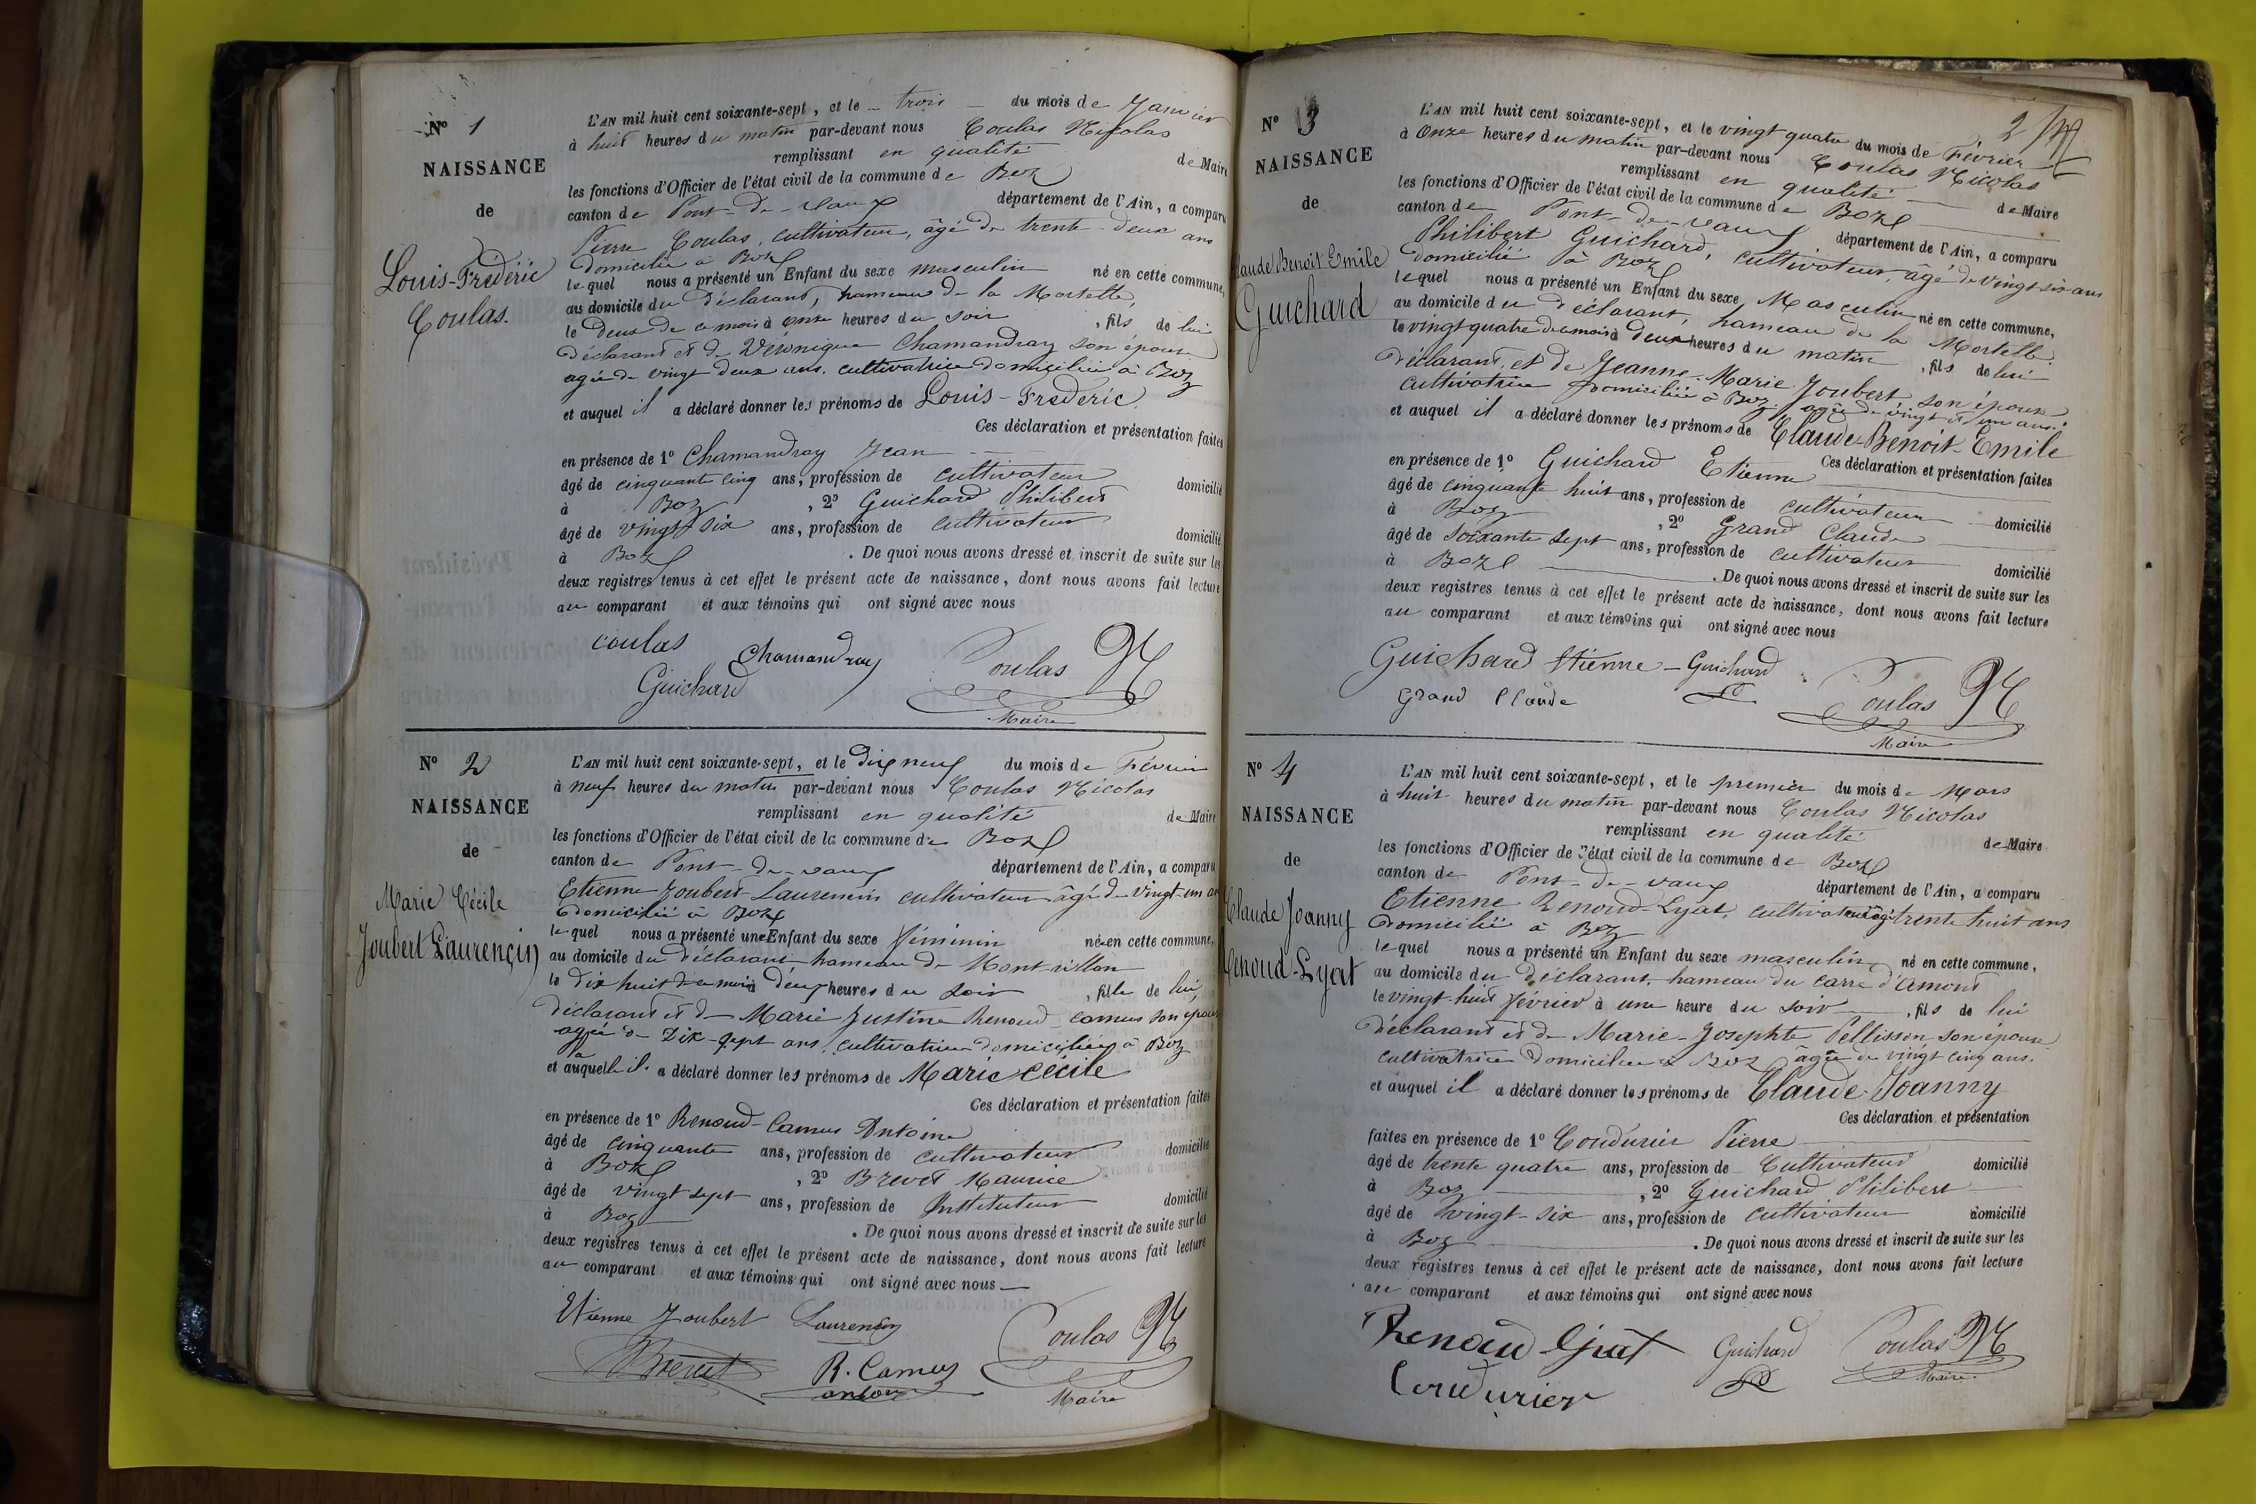 N° 1
NAISSANCE
de
Louis-Frédéric
Coulas.
L'AN mil huit cent soixante-sept, et le trois du mois de Janvier
à huit heures du matin par-devant nous Coulas Nicolas
remplissant en qualité de Maire
les fonctions d'Officier de l'état civil de la commune de Boz
canton de Pont-de-vaux département de l'Ain, a comparu
Pierre Coulas, cultivateur, âgé de trente-deux ans
domicilié à Boz
lequel nous a présenté un Enfant du sexe masculin né en cette commune,
au domicile du déclarant, hameau de la Mortelle,
le deux de ce mois à onze heures du soir, fils de lui
déclarant et de Véronique Chamandray son épouse
agée de vingt deux ans. cultivatrice domiciliée à Boz
et auquel il a déclaré donner les prénoms de Louis-Fréderic
Ces déclaration et présentation faites
en présence de 1° Chamandray Jean
âgé de cinquante cinq ans, profession de cultivateur domicilié
à Boz, 2° Guichard Philibert
âgé de vingt six ans, profession de cultivateur domicilié
à Boz. De quoi nous avons dressé et inscrit de suite sur les
deux registres tenus à cet effet le présent acte de naissance, dont nous avons fait lecture
au comparant et aux témoins qui ont signé avec nous
coulas Chamandray Coulas N
Guichard
Maire
N° 2
NAISSANCE
de
Marie Cécile
Joubert Laurençin
L'AN mil huit cent soixante-sept, et le dix neuf du mois de Février
à neuf heures du matin par-devant nous Coulas Nicolas
remplissant en qualité de Maire
les fonctions d'Officier de l'état civil de la commune de Boz
canton de Pont-de-vaux département de l'Ain, a comparu
Etienne Joubert-Laurencin cultivateur âgé de vingt-un an
domicilié à Boz
lequel nous a présenté une Enfant du sexe féminin née en cette commune,
au domicile du déclarant hameau de Mont-rillon
le dix huit de ce mois à deux heures du soir, fille de lui,
déclarant et de Marie Justine Renoud-camus son épouse
agée de Dix-sept ans, cultivatrice domiciliée à Boz
et à laquelle il a déclaré donner les prénoms de Marie Cécile
Ces déclaration et présentation faites
en présence de 1° Renoud-Camus Antoine
âgé de cinquante ans, profession de cultivateur domicilié
à Boz, 2° Brevet Maurice
âgé de vingt sept ans, profession de Instituteur domicilié
à Boz. De quoi nous avons dressé et inscrit de suite sur les
deux registres tenus à cet effet le présent acte de naissance, dont nous avons fait lecture
au comparant et aux témoins qui ont signé avec nous
Etienne Joubert Laurencin Coulas N
Brevet R. Camus
antoine Maire
2
N° 3
NAISSANCE
de
Claude Benoit Emile
Guichard
L'AN mil huit cent soixante-sept, et le vingt quatre du mois de Février
à Onze heures du matin par-devant nous Coulas Nicolas
remplissant en qualité de Maire
les fonctions d'Officier de l'état civil de la commune de Boz
canton de Pont-de-vaux département de l'Ain, a comparu
Philibert Guichard, cultivateur, âgé de vingt six ans
domicilié à Boz
lequel nous a présenté un Enfant du sexe Masculin né en cette commune,
au domicile du déclarant, hameau de la Mortelle
le vingt quatre de ce mois à deux heures du matin, fils de lui
déclarant et de Jeanne-Marie Joubert son épouse
cultivatrice domiciliée à Boz. agée de vingt et un ans.
et auquel il a déclaré donner les prénoms de Claude-Benoit-Emile
Ces déclaration et présentation faites
en présence de 1° Guichard Etienne
âgé de cinquante huit ans, profession de cultivateur domicilié
à Boz, 2° Grand Claude
âgé de soixante sept ans, profession de cultivateur domicilié
à Boz. De quoi nous avons dressé et inscrit de suite sur les
deux registres tenus à cet effet le présent acte de naissance, dont nous avons fait lecture
au comparant et aux témoins qui ont signé avec nous
Guichard Etienne - Guichard Coulas N
Grand Claude
Maire
N° 4
NAISSANCE
de
Claude Joanny
Renoud-Lyat
L'AN mil huit cent soixante-sept, et le premier du mois de Mars
à huit heures du matin par-devant nous Coulas Nicolas
remplissant en qualité de Maire
les fonctions d'Officier de l'état civil de la commune de Boz
canton de Pont-de-vaux département de l'Ain, a comparu
Etienne Renoud-Lyat, cultivateur âgé trente huit ans
domicilié à Boz
lequel nous a présenté un Enfant du sexe masculin né en cette commune,
au domicile du déclarant, hameau du carre d'Amont
le vingt-huit février à une heure du soir, fils de lui
déclarant et de Marie-Josephte Pellisson son épouse
cultivatrice domiciliée à Boz âgée de vingt cinq ans.
et auquel il a déclaré donner les prénoms de Claude-Joanny
Ces déclaration et présentation
faites en présence de 1° Coudurier Pierre
âgé de trente quatre ans, profession de Cultivateur domicilié
à Boz, 2° Guichard Philibert
âgé de vingt-six ans, profession de cultivateur domicilié
à Boz. De quoi nous avons dressé et inscrit de suite sur les
deux registres tenus à cet effet le présent acte de naissance, dont nous avons fait lecture
au comparant et aux témoins qui ont signé avec nous
Renoud Lyat Guichard Coulas N
Coudurier Maire